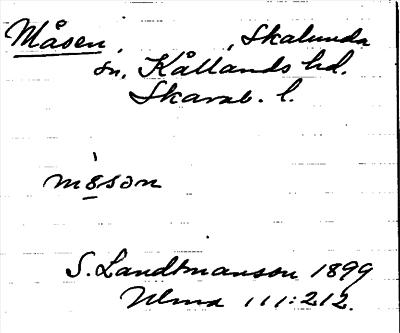 Måsen, , Skalunda
sn. Kållands hd.
Skarab. l.
måsən
S. Landtmanson 1899
Ulma 111:212.